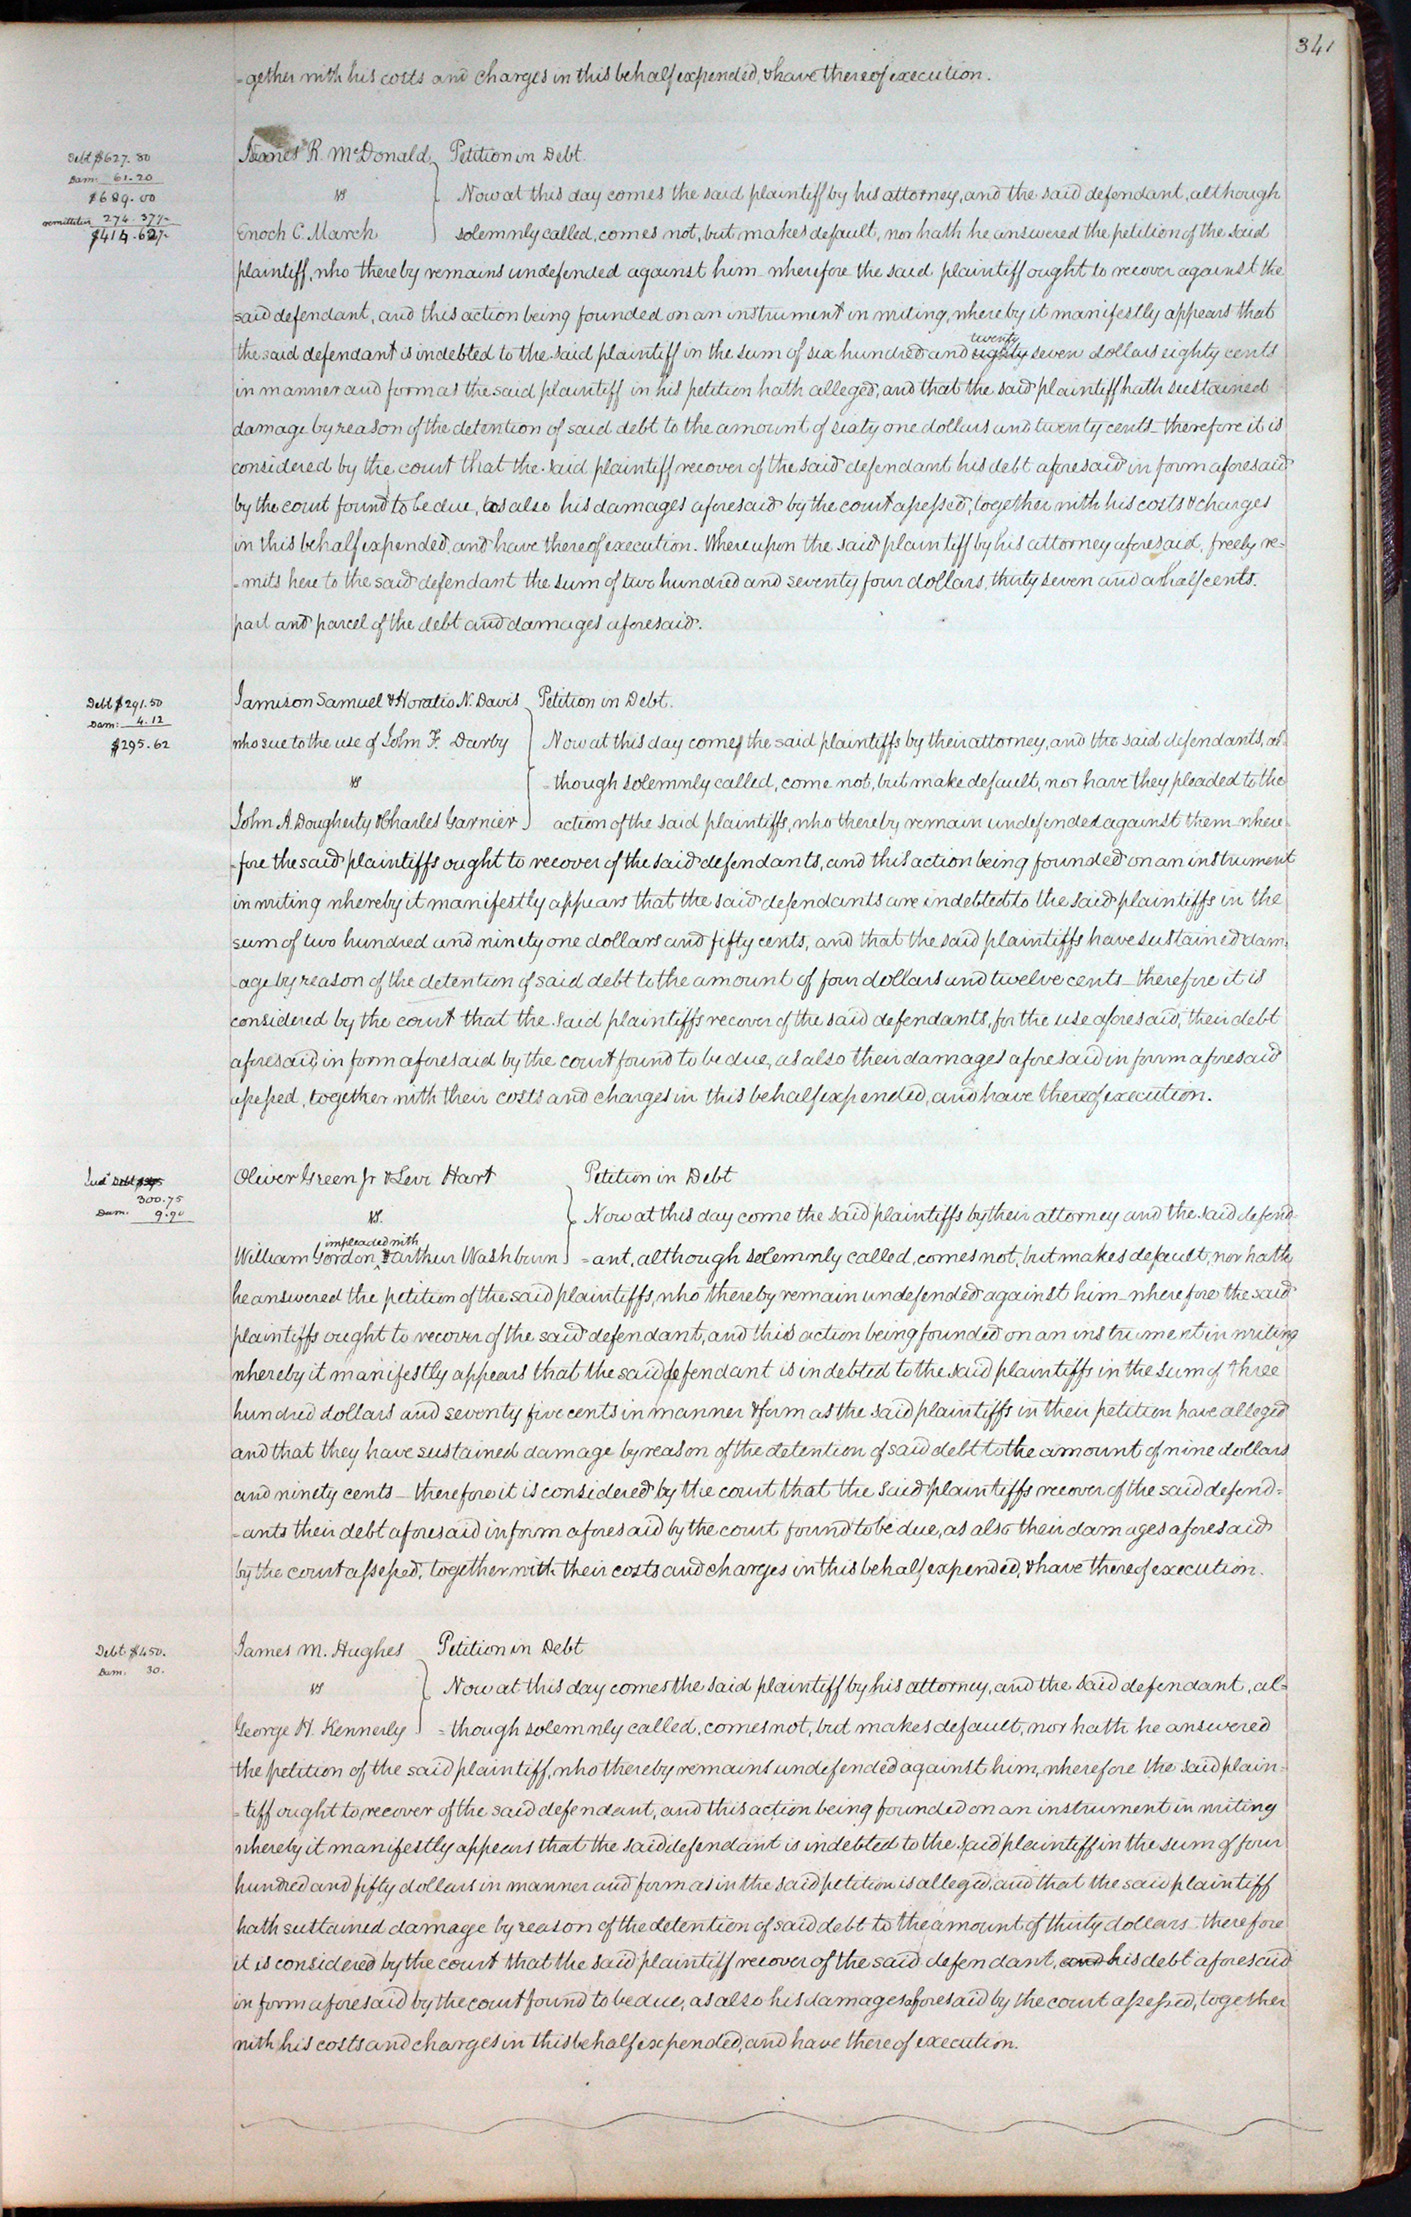 341
=gether with his costs and charges in this behalf expended, & have thereof execution.
Debt $627.80
Dam: 61.20
$689.00
remittitur 274.37½
$414.62½
James R. McDonald
vs
Enoch C. March
Petition in Debt.
Now at this day comes the said plaintiff by his attorney, and the said defendant, although
solemnly called, comes not, but makes default, nor hath he answered the petition of the said
plaintiff, who thereby remains undefended against him – wherefore the said plaintiff ought to recover against the
said defendant, and this action being founded on an instrument in writing, whereby it manifestly appears that
twenty
the said defendant is indebted to the said plaintiff in the sum of six hundred and eighty seven dollars eighty cents
in manner and form as the said plaintiff in his petition hath alleged, and that the said plaintiff hath sustained
damage by reason of the detention of said debt to the amount of sixty one dollars and twenty cents – therefore it is
considered by the court that the said plaintiff recover of the said defendant his debt aforesaid in form aforesaid
by the court found to be due, as also his damages aforesaid by the court assessed, together with his costs & charges
in this behalf expended, and have thereof execution. Whereupon the said plaintiff by his attorney aforesaid, freely re=
=mits here to the said defendant the sum of two hundred and seventy four dollars, thirty seven and a half cents.
part and parcel of the debt and damages aforesaid.
Debt $291.50
Dam: 4.12
$295.62
Jamison Samuel & Horatio N. Davis
who sue to the use of John F. Darby
vs
John A. Dougherty & Charles Garnier
Petition in Debt.
Now at this day comes the said plaintiffs by their attorney, and the said defendants, al=
=though solemnly called, come not, but make default, nor have they pleaded to the
action of the said plaintiffs, who thereby remain undefended against them – where=
=fore the said plaintiffs ought to recover of the said defendants, and this action being founded on an instrument
in writing whereby it manifestly appears that the said defendants are indebted to the said plaintiffs in the
sum of two hundred and ninety one dollars and fifty cents, and that the said plaintiffs have sustained dam=
=age by reason of the detention of said debt to the amount of four dollars and twelve cents – therefore it is
considered by the court that the said plaintiffs recover of the said defendants, for the use aforesaid, their debt
aforesaid, in form aforesaid by the court found to be due, as also their damages aforesaid in form aforesaid
assessed, together with their costs and charges in this behalf expended, and have thereof execution.
Debt
300.75
Dam. 9.90
Oliver Green Jr & Levi Hart
vs.
impleaded with
William Gordon & Arthur Washburn
Petition in Debt
Now at this day come the said plaintiffs by their attorney and the said defend=
=ant, although solemnly called, comes not, but makes default, nor hath
he answered the petition of the said plaintiffs, who thereby remain undefended against him – wherefore the said
plaintiffs ought to recover of the said defendant, and this action being founded on an instrument in writing
whereby it manifestly appears that the said defendant is indebted to the said plaintiffs in the sum of three
hundred dollars and seventy five cents in manner & form as the said plaintiffs in their petition have alleged
and that they have sustained damage by reason of the detention of said debt to the amount of nine dollars
and ninety cents – therefore it is considered by the court that the said plaintiffs recover of the said defend=
=ants their debt aforesaid in form aforesaid by the court found to be due, as also their damages aforesaid
by the court assessed, together with their costs and charges in this behalf expended, & have thereof execution.
Debt $450.
Dam. 30.
James M. Hughes
vs
George H. Kennerly
Petition in Debt
Now at this day comes the said plaintiff by his attorney, and the said defendant, al=
=though solemnly called, comes not, but makes default, nor hath he answered
the petition of the said plaintiff, who thereby remains undefended against him, wherefore the said plain=
=tiff ought to recover of the said defendant, and this action being founded on an instrument in writing
whereby it manifestly appears that the said defendant is indebted to the said plaintiff in the sum of four
hundred and fifty dollars in manner and form as in the said petition is alleged, and that the said plaintiff
hath sustained damage by reason of the detention of said debt to the amount of thirty dollars – therefore
it is considered by the court that the said plaintiff recover of the said defendant, and his debt aforesaid
in form aforesaid by the court found to be due, as also his damages aforesaid by the court assessed, together
with his costs and charges in this behalf expended, and have thereof execution.